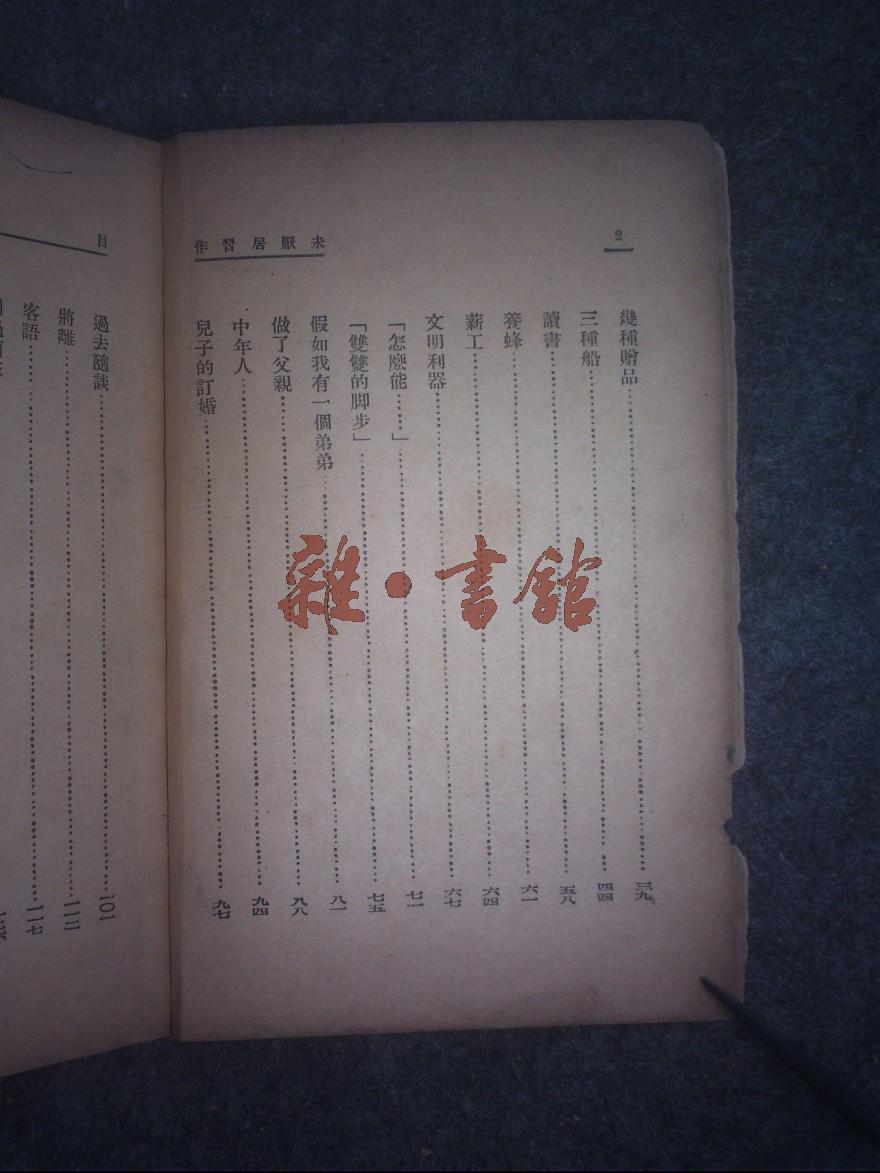 2
未厭居習作
幾種贈品……三九
三種船……四四
讀書……五八
養蜂……六一
薪工……六四
文明利器……六七
「怎麽能……」……七一
「雙雙的脚步」……七五
假如我有一個弟弟……八一
做了父親……八八
中年人……九四
兒子的訂婚……九七
目
過去隨談……一〇一
將離……一一二
客語……一一七
雜·書館